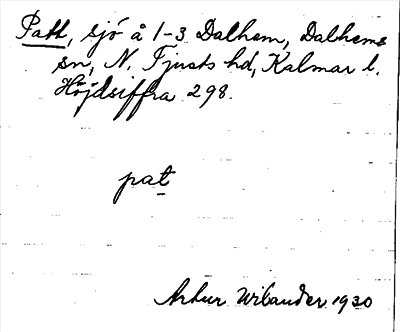 Patt, sjö å 1-3 Dalhem, Dalhems
sn, N. Tjusts hd, Kalmar l.
Höjdsiffra 298.
pat
Arthur Wibander 1930